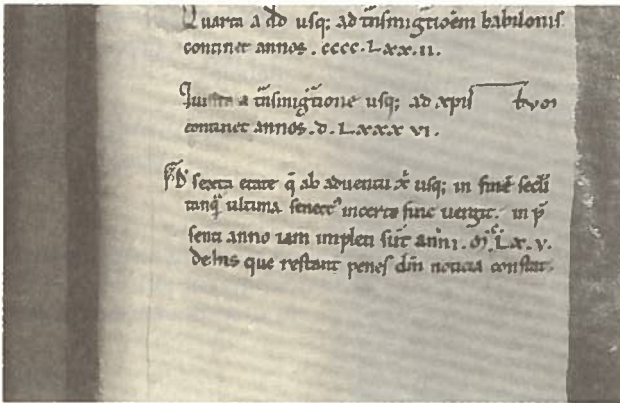 Quarta a dđ usq; ad t̃nsmigr̃tiõem babilonis
continet annos . cccc . Lxx . ii .
Quinta a t̃nsmigr̃tione usq; ad xp̃i
continet annos . d . Lxxx vi .
sexta etate q̃ ab adventu xp̃i usq; in finẽ sec̃li
tanq̃ ultima senect᾿ incerto fine vergit . in p̃
senti anno iam impleti sũt anni . Lx . v .
de his que restant penes dñm noticia constat .